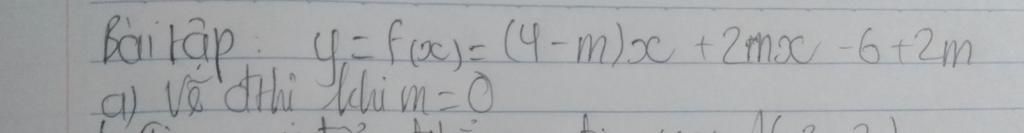 Bài tập: y = f(x) = (4 - m)x + 2mx - 6 + 2m
a) Vẽ đthi khi m = 0